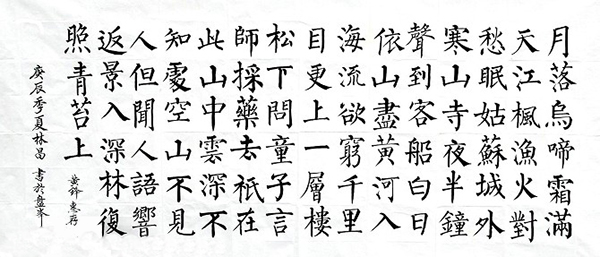 月落烏啼霜滿
天江楓漁火對
愁眠姑蘇城外
寒山寺夜半鐘
聲到客船白日
依山盡黃河入
海流欲窮千里
目更上一層樓
松下問童子言
師採藥去祇在
此山中雲深不
知處空山不見
人但聞人語響
返景入深林復
照青苔上
惠存
庚辰季夏林昌書於盤峯